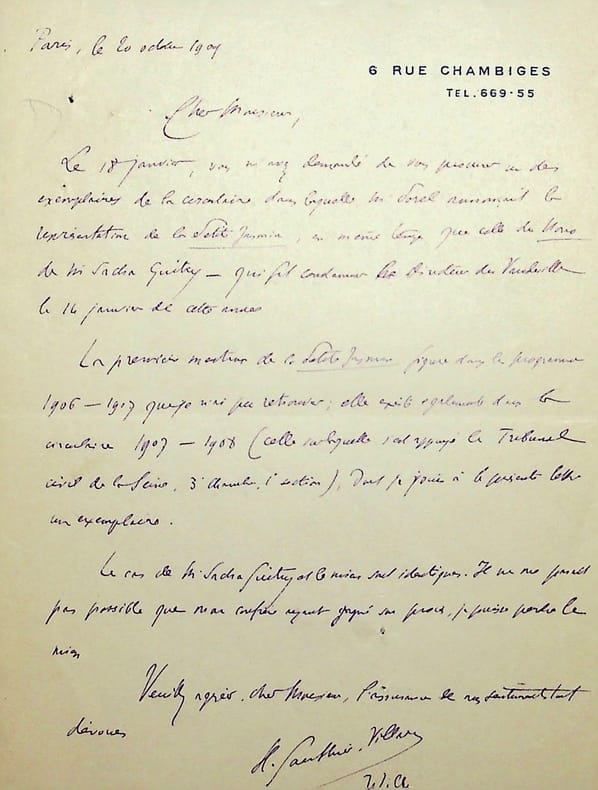 Paris, le 20 octobre 1909
6 RUE CHAMBIGES
TEL. 669-55
Cher Monsieur,
Le 18 janvier, vous m'avez demandé de vous procurer un des
exemplaires de la circulaire dans laquelle M. Porel annonçait la
représentation de la Petite Jasmin, en même temps que celle du
de M. Sacha Guitry — qui fit condamner le Directeur du Vaudeville
le 14 janvier de cette année
La première mention de la Petite Jasmin figure dans le programme
1906 — 1907 que je n'ai pu retrouver; elle existe également dans la
circulaire 1907 — 1908 (celle sur laquelle s'est appuyé le Tribunal
civil de la Seine, 3e chambre, 1e section), dont je joins à la présente lettre
un exemplaire.
Le cas de M. Sacha Guitry et le mien sont identiques. Il ne me paraît
pas possible que mon confrère ayant gagné son procès, je puisse perdre le
mien
Veuillez agréer, cher Monsieur, l'assurance de mes sentiments tout
dévoués
H. Gauthier-Villars